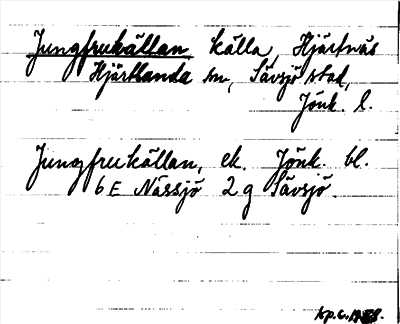 Jungfrukällan, källa, Hjärtnäs
Hjärtlanda sn, Sävsjö stad,
Jönk. l.
Jungfrukällan, ek. Jönk. bl.
6E Nässjö 2g Sävsjö.